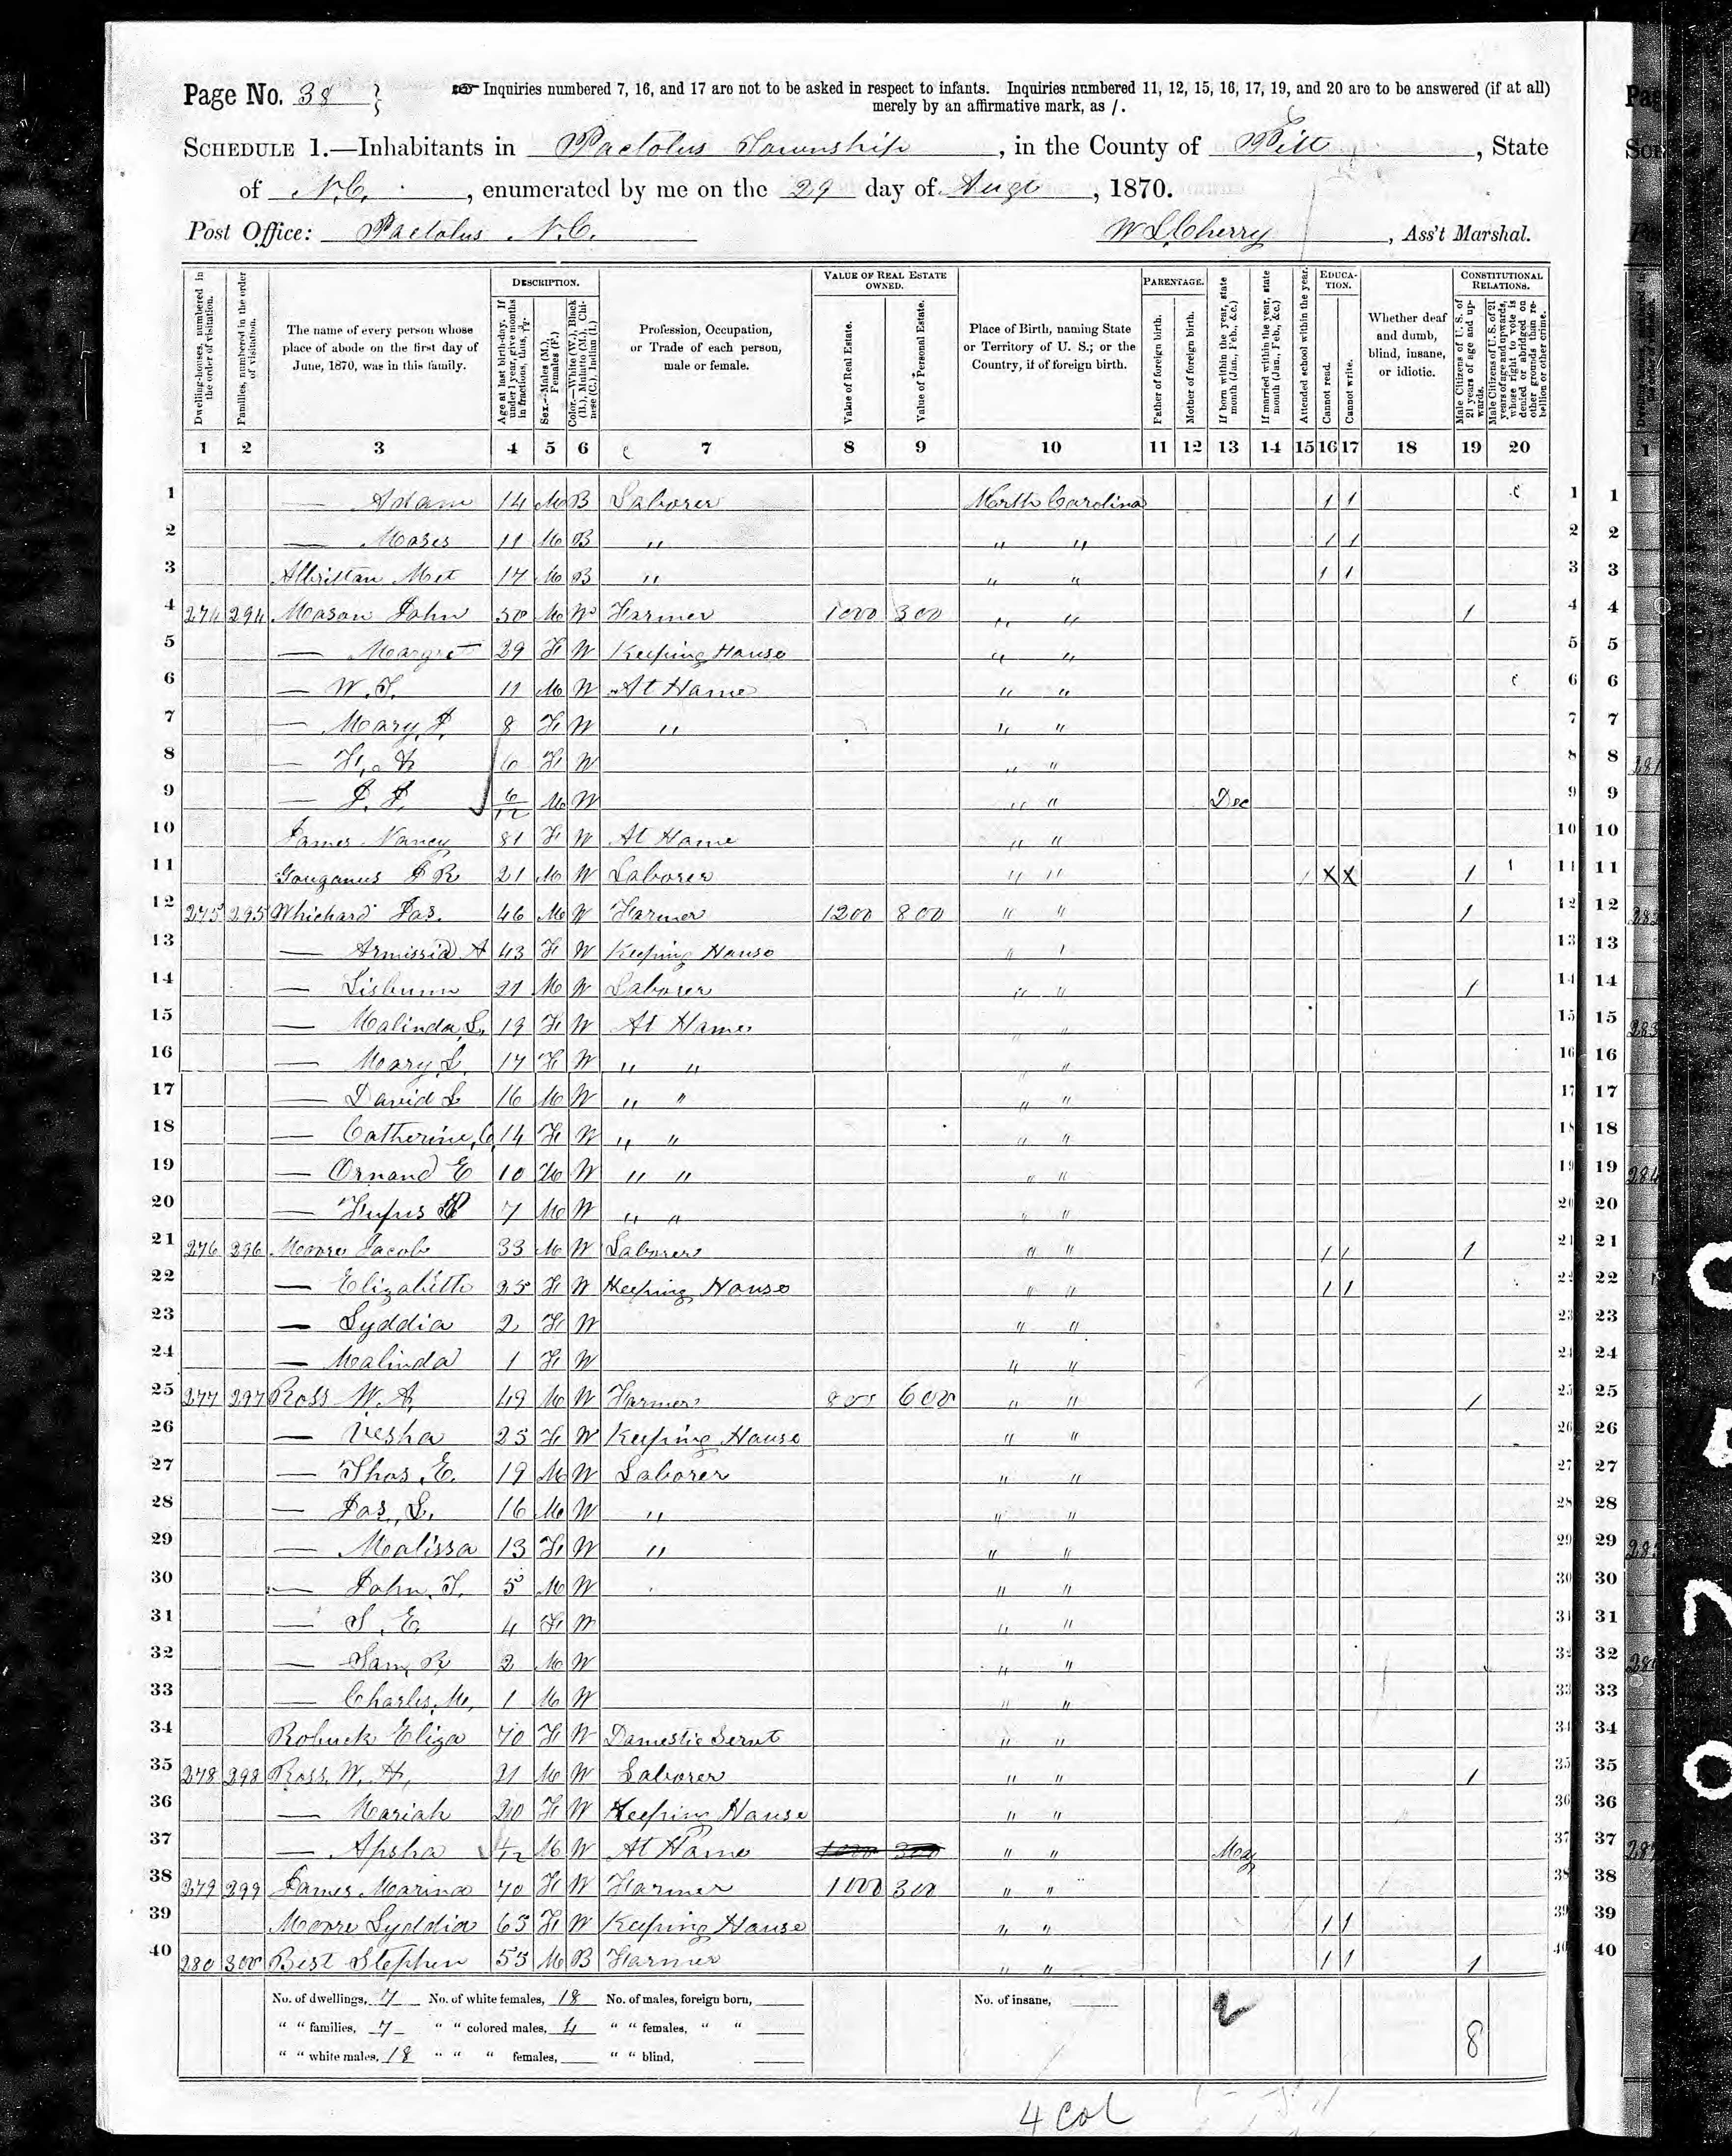 Page No. 38 } Inquiries numbered 7, 16, and 17 are not to be asked in respect to infants. Inquiries numbered 11, 12, 15, 16, 17, 19, and 20 are to be answered (if at all)
merely by an affirmative mark, as /.
SCHEDULE 1.—Inhabitants in Pactolus Township, in the County of Pitt, State
of N.C., enumerated by me on the 29 day of Augt, 1870.
Post Office: Pactolus N.C. W L Cherry, Ass't Marshal.
Dwelling-houses, numbered in the order of visitation.
Families, numbered in the order of visitation.
The name of every person whose place of abode on the first day of June, 1870, was in this family.
DESCRIPTION.
Age at last birth-day. If under 1 year, give months in fractions, thus, 3/12.
Sex.—Males (M.), Females (F.)
Color.—White (W.), Black (B.), Mulatto (M.), Chinese (C.), Indian (I.)
Profession, Occupation, or Trade of each person, male or female.
VALUE OF REAL ESTATE OWNED.
Value of Real Estate.
Value of Personal Estate.
Place of Birth, naming State or Territory of U. S.; or the Country, if of foreign birth.
PARENTAGE.
Father of foreign birth.
Mother of foreign birth.
If born within the year, state month (Jan., Feb., &c.)
If married within the year, state month (Jan., Feb., &c.)
Attended school within the year.
EDUCATION.
Cannot read.
Cannot write.
Whether deaf and dumb, blind, insane, or idiotic.
CONSTITUTIONAL RELATIONS.
Male Citizens of U. S. of 21 years of age and upwards.
Male Citizens of U. S. of 21 years of age and upwards, whose right to vote is denied or abridged on other grounds than rebellion or other crime.
1 2 3 4 5 6 7 8 9 10 11 12 13 14 15 16 17 18 19 20
1 — Adam 14 M B Laborer North Carolina / / 1
2 — Moses 11 M B " " " / / 2
3 Albrittan Met 17 M B " " " / / 3
4 274 294 Mason John 50 M W Farmer 1000 300 " " / 4
5 — Margret 39 F W Keeping House " " 5
6 — W. T. 11 M W At Home " " 6
7 — Mary J. 8 F W " " " 7
8 — F. 6 F W " " 8
9 — J. J. 6/12 M W " " Dec 9
10 James Nancy 81 F W At Home " " 10
11 Gouganus J R 21 M W Laborer " " / X X / 11
12 275 295 Whichard Jas. 46 M W Farmer 1200 800 " " / 12
13 — Armissia A 43 F W Keeping House " " 13
14 — Lisbunn 21 M W Laborer " " / 14
15 — Malinda L. 19 F W At Home " 15
16 — Mary L. 17 F W " " " " 16
17 — David L 16 M W " " " " 17
18 — Catherine, C 14 F W " " " " 18
19 — Ornand E 10 M W " " " " 19
20 — Fufus 7 M W " " " " 20
21 276 296 Moore Jacob 33 M W Laborer " " / / / 21
22 — Elizabeth 25 F W Keeping House " " / / 22
23 — Lyddia 2 F W " " 23
24 — Malinda 1 F W " " 24
25 277 297 Ross W. A. 49 M W Farmer 800 600 " " / 25
26 — Vesha 25 F W Keeping House " " 26
27 — Thos. E. 19 M W Laborer " " 27
28 — Jas. L. 16 M W " " " 28
29 — Malissa 13 F W " " " 29
30 — John. T. 5 M W " " 30
31 — S. E. 4 F W " " 31
32 — Sam, R 2 M W " " 32
33 — Charles. M. 1 M W " " 33
34 Robuck Eliza 70 F W Domestic Servt " " 34
35 278 298 Ross. W. H. 21 M W Laborer " " / 35
36 — Mariah 20 F W Keeping House " " 36
37 — Apsha /12 M W At Home 1000 300 " " May 37
38 279 299 James Marina 70 F W Farmer 1000 300 " " 38
39 Moore Lyddia 65 F W Keeping House " " / / 39
40 280 300 Best Stephen 55 M B Farmer " " / / / 40
No. of dwellings, 7 No. of white females, 18 No. of males, foreign born, No. of insane, 2
" " families, 7 " " colored males, 4 " " females, " " 8
" " white males, 18 " " " females, " " blind,
4 Col